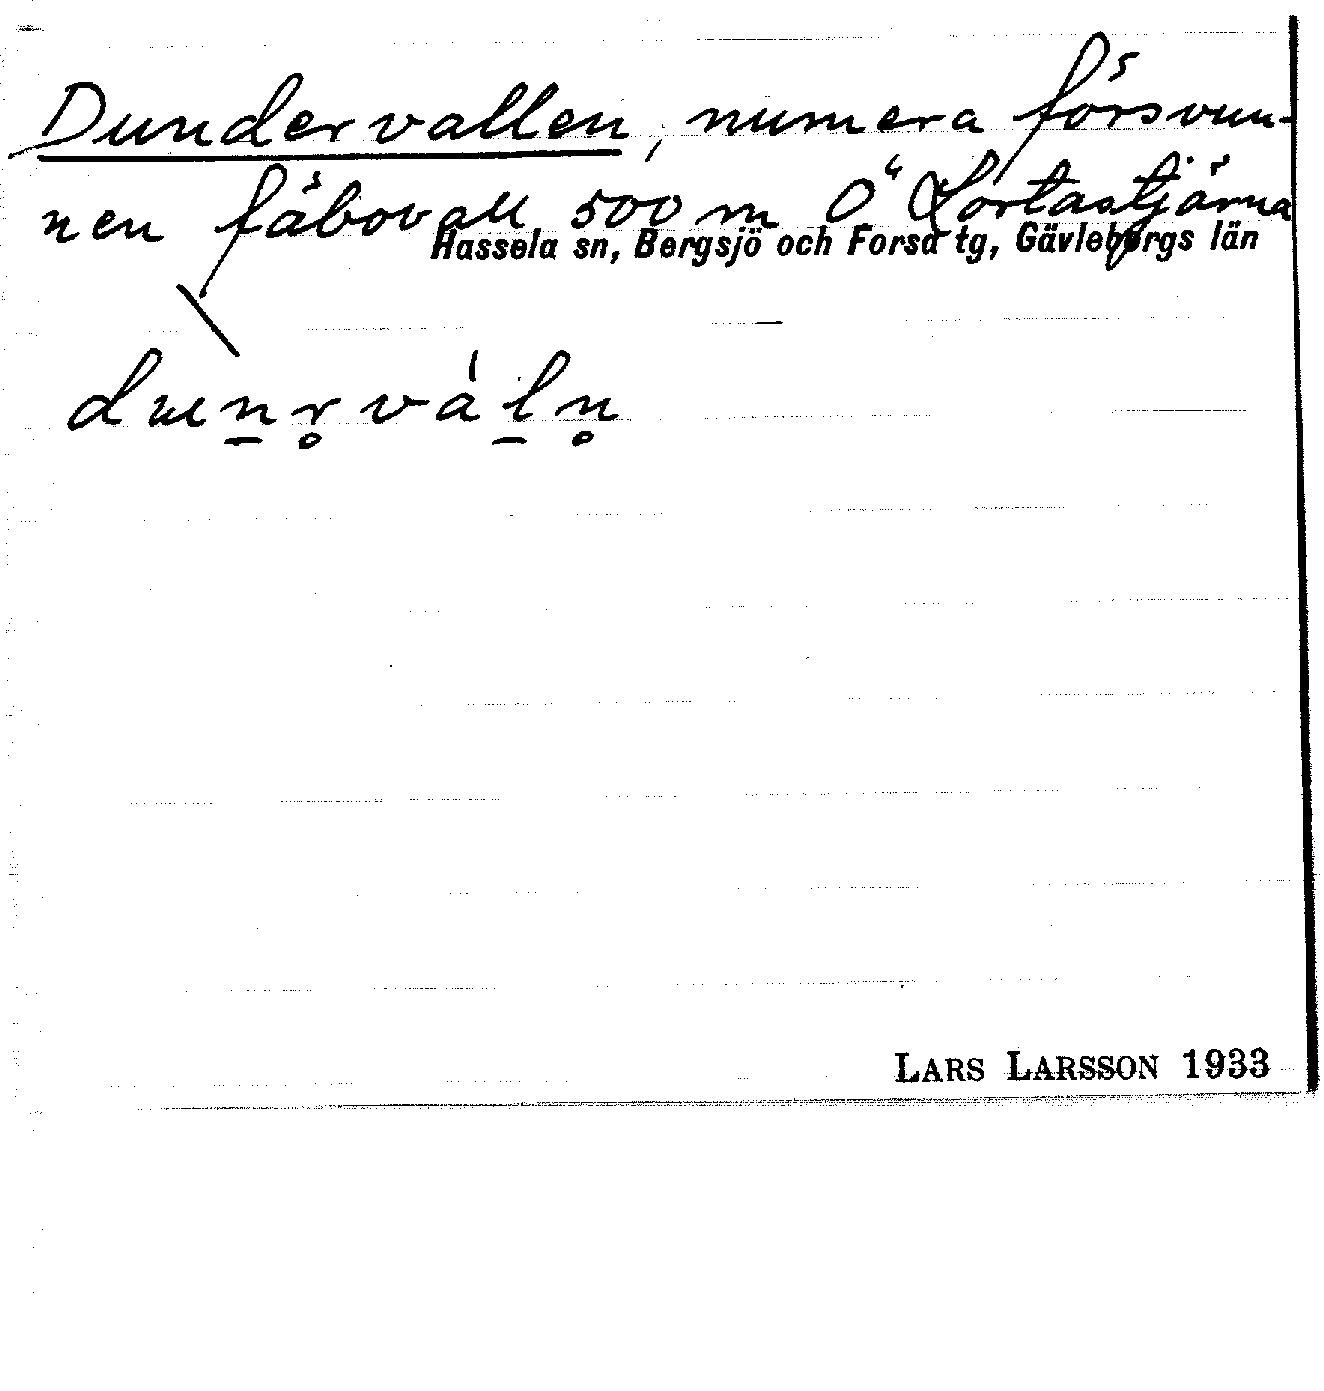 Dundervallen, numera försvun-
nen fäbovall 500 m Ö Lortastjärna
Hassela sn, Bergsjö och Forsa tg, Gävleborgs län
LARS LARSSON 1933